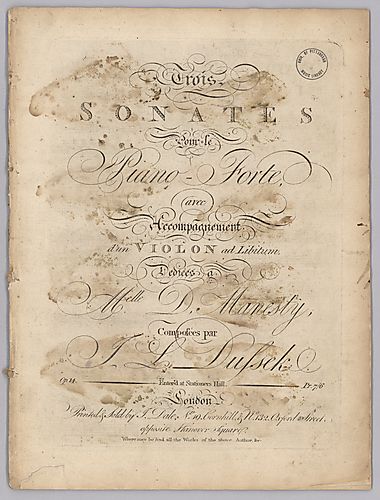 UNIV. OF PITTSBURGH
MUSIC LIBRARY
Trois
SONATES
Pour le
Piano-Forte,
avec
Accompagnement
d'un VIOLON ad Libitum,
Dediées à
Melle D. Manesby,
Composées par
J. L. Dussek.
Op: 14. Enter'd at Stationers Hall. Pr. 7/6
London
Printed & Sold by J. Dale, No. 19, Cornhill, & No. 132, Oxford Street
opposite Hanover Square.
Where may be had all the Works of the above Author, &c.